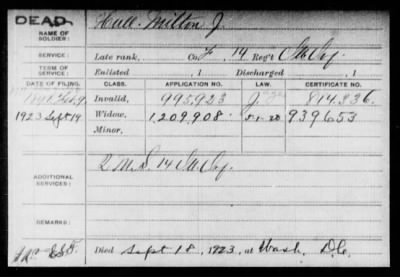 DEAD
NAME OF SOLDIER: Hull, Milton J.
SERVICE: Late rank, Co. F, 14 Reg't
TERM OF SERVICE: Enlisted , 1 Discharged , 1
DATE OF FILING. CLASS. APPLICATION NO. LAW. CERTIFICATE NO.
Invalid, 995,923 814,336.
1923 Sept 19 Widow, 1,209,908 5-1-20 939653
Minor,
ADDITIONAL SERVICES: Q.M.S. 14
REMARKS:
Died Sept 18, 1923, at Wash. D.C.